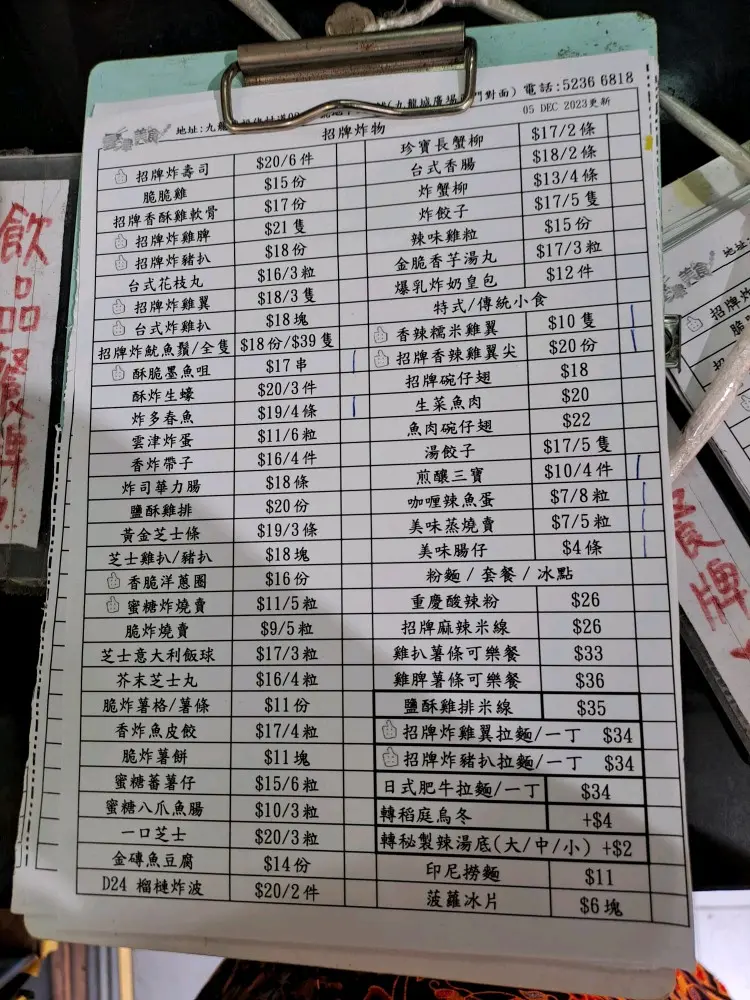 地址:九龍
(九龍城廣場
門對面) 電話:5236 6818
05 DEC 2023更新
招牌炸物
招牌炸壽司 $20/6件
脆脆雞 $15份
招牌香酥雞軟骨 $17份
招牌炸雞脾 $21隻
招牌炸豬扒 $18份
台式花枝丸 $16/3粒
招牌炸雞翼 $18/3隻
台式炸雞扒 $18塊
招牌炸魷魚鬚/全隻 $18份/$39隻
酥脆墨魚咀 $17串
酥炸生蠔 $20/3件
炸多春魚 $19/4條
雲津炸蛋 $11/6粒
香炸帶子 $16/4件
炸司華力腸 $18條
鹽酥雞排 $20份
黃金芝士條 $19/3條
芝士雞扒/豬扒 $18塊
香脆洋蔥圈 $16份
蜜糖炸燒賣 $11/5粒
脆炸燒賣 $9/5粒
芝士意大利飯球 $17/3粒
芥末芝士丸 $16/4粒
脆炸薯格/薯條 $11份
香炸魚皮餃 $17/4粒
脆炸薯餅 $11塊
蜜糖蕃薯仔 $15/6粒
蜜糖八爪魚腸 $10/3粒
一口芝士 $20/3粒
金磚魚豆腐 $14份
D24 榴槤炸波 $20/2件
珍寶長蟹柳 $17/2條
台式香腸 $18/2條
炸蟹柳 $13/4條
炸餃子 $17/5隻
辣味雞粒 $15份
金脆香芋湯丸 $17/3粒
爆乳炸奶皇包 $12件
特式/傳統小食
香辣糯米雞翼 $10隻
招牌香辣雞翼尖 $20份
招牌碗仔翅 $18
生菜魚肉 $20
魚肉碗仔翅 $22
湯餃子 $17/5隻
煎釀三寶 $10/4件
咖喱辣魚蛋 $7/8粒
美味蒸燒賣 $7/5粒
美味腸仔 $4條
粉麵 / 套餐 / 冰點
重慶酸辣粉 $26
招牌麻辣米線 $26
雞扒薯條可樂餐 $33
雞脾薯條可樂餐 $36
鹽酥雞排米線 $35
招牌炸雞翼拉麵/一丁 $34
招牌炸豬扒拉麵/一丁 $34
日式肥牛拉麵/一丁 $34
轉稻庭烏冬 +$4
轉秘製辣湯底(大/中/小) +$2
印尼撈麵 $11
菠蘿冰片 $6塊
飲品餐牌
餐牌